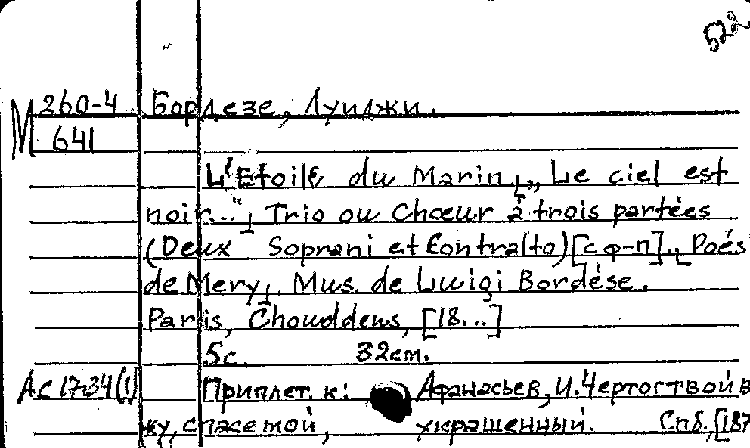 522
M 260-4 Бордезе, Луиджи.
641
L'Etoile du Marin [„Le ciel est
noir..."] Trio ou Chœur à trois partées
(Deux Soprani et Contralto) [с ф-п]., Poés
de Mery. Mus. de Luigi Bordèse.
Paris, Chouddens, [18...]
5с. 32cm.
Ас 1734(1) Приплет. к: Афанасьев, И. Чертог твой в
жу, спасе мой, украшенный. Спб., [187